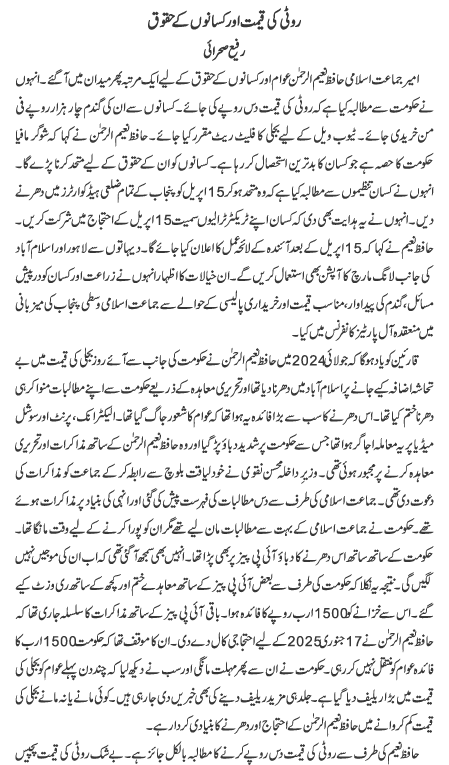 روٹی کی قیمت اور کسانوں کے حقوق
رفیع صحرائی
امیر جماعت اسلامی حافظ نعیم الرحمٰن عوام اور کسانوں کے حقوق کے لیے ایک مرتبہ پھر میدان میں آ گئے۔ انہوں
نے حکومت سے مطالبہ کیا ہے کہ روٹی کی قیمت دس روپے کی جائے۔ کسانوں سے ان کی گندم چار ہزار روپے فی
من خریدی جائے۔ ٹیوب ویل کے لیے بجلی کا فلیٹ ریٹ مقرر کیا جائے۔ حافظ نعیم الرحمٰن نے کہا کہ شوگر مافیا
حکومت کا حصہ ہے جو کسان کا بدترین استحصال کر رہا ہے۔ کسانوں کو ان کے حقوق کے لیے متحد کرنا پڑے گا۔
انہوں نے کسان تنظیموں سے مطالبہ کیا ہے کہ وہ متحد ہو کر 15 اپریل کو پنجاب کے تمام ضلعی ہیڈ کوارٹرز میں دھرنے
دیں۔ انہوں نے یہ ہدایت بھی دی کہ کسان اپنے ٹریکٹر ٹرالیوں سمیت 15 اپریل کے احتجاج میں شرکت کریں۔
حافظ نعیم نے کہا کہ 15 اپریل کے بعد آئندہ کے لائحہ عمل کا اعلان کیا جائے گا۔ دیہاتوں سے لاہور اور اسلام آباد
کی جانب لانگ مارچ کا آپشن بھی استعمال کریں گے۔ ان خیالات کا اظہار انہوں نے زراعت اور کسان کو درپیش
مسائل، گندم کی پیداوار، مناسب قیمت اور خریداری پالیسی کے حوالے سے جماعت اسلامی وسطی پنجاب کی میزبانی
میں منعقدہ آل پارٹیز کانفرنس میں کیا۔
قارئین کو یاد ہو گا کہ جولائی 2024 میں حافظ نعیم الرحمٰن نے حکومت کی جانب سے آئے روز بجلی کی قیمت میں بے
تحاشہ اضافہ کیے جانے پر اسلام آباد میں دھرنا دیا تھا اور تحریری معاہدہ کے ذریعے حکومت سے اپنے مطالبات منوا کر ہی
دھرنا ختم کیا تھا۔ اس دھرنے کا سب سے بڑا فائدہ یہ ہوا تھا کہ عوام کا شعور جاگ گیا تھا۔ الیکٹرانک، پرنٹ اور سوشل
میڈیا پر یہ معاملہ اجاگر ہوا تھا جس سے حکومت پر شدید دباؤ پڑ گیا اور وہ حافظ نعیم الرحمٰن کے ساتھ مذاکرات اور تحریری
معاہدہ کرنے پر مجبور ہوئی تھی۔ وزیر داخلہ محسن نقوی نے خود لیاقت بلوچ سے رابطہ کر کے جماعت کو مذاکرات کی
دعوت دی تھی۔ جماعت اسلامی کی طرف سے دس مطالبات کی فہرست پیش کی گئی اور انہی کی بنیاد پر مذاکرات ہوئے
تھے۔ حکومت نے جماعت اسلامی کے بہت سے مطالبات مان لیے تھے مگر ان کو پورا کرنے کے لیے وقت مانگا تھا۔
حکومت کے ساتھ ساتھ اس دھرنے کا دباؤ آئی پی پیز پر بھی پڑا تھا۔ انہیں بھی سمجھ آ گئی تھی کہ اب ان کی موجیں نہیں
لگیں گی۔ نتیجہ یہ نکلا کہ حکومت کی طرف سے بعض آئی پی پیز کے ساتھ معاہدے ختم اور کچھ کے ساتھ ری وزٹ کیے
گئے۔ اس سے خزانے کو 1500 ارب روپے کا فائدہ ہوا۔ باقی آئی پی پیز کے ساتھ مذاکرات کا سلسلہ جاری تھا کہ
حافظ نعیم الرحمٰن نے 17 جنوری 2025 کے لیے احتجاجی کال دے دی۔ ان کا موقف تھا کہ حکومت 1500 ارب کا
فائدہ عوام کو منتقل نہیں کر رہی۔ حکومت نے ان سے پھر مہلت مانگی اور سب نے دیکھ لیا کہ چند دن پہلے عوام کو بجلی کی
قیمت میں بڑا ریلیف دیا گیا ہے۔ جلد ہی مزید ریلیف دینے کی بھی خبریں دی جا رہی ہیں۔ کوئی مانے یا نہ مانے بجلی کی
قیمت کم کروانے میں حافظ نعیم الرحمٰن کے احتجاج اور دھرنے کا بنیادی کردار ہے۔
حافظ نعیم کی طرف سے روٹی کی قیمت دس روپے کرنے کا مطالبہ بالکل جائز ہے۔ بے شک روٹی کی قیمت پچیس